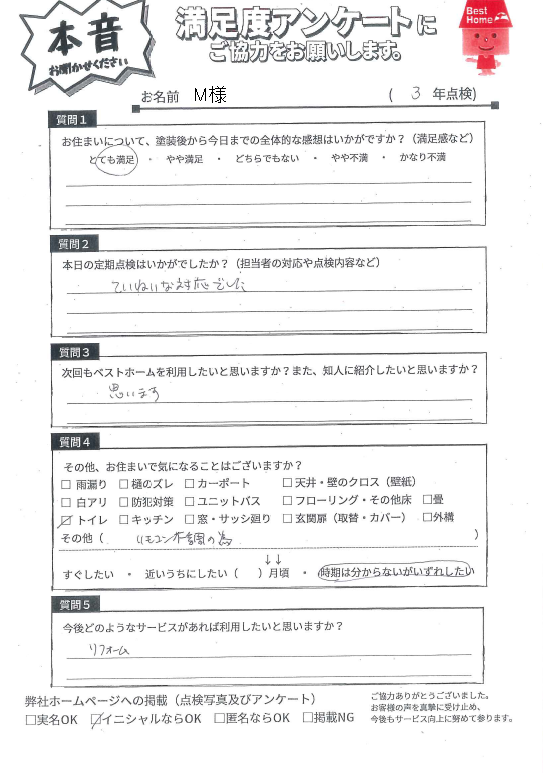 本音
お聞かせください
満足度アンケートに
ご協力をお願いします。
Best Home
お名前 M様 ( 3 年点検)
質問1
お住まいについて、塗装後から今日までの全体的な感想はいかがですか？（満足感など）
とても満足 ・ やや満足 ・ どちらでもない ・ やや不満 ・ かなり不満
質問2
本日の定期点検はいかがでしたか？（担当者の対応や点検内容など）
ていねいな対応でした
質問3
次回もベストホームを利用したいと思いますか？また、知人に紹介したいと思いますか？
思います
質問4
その他、お住まいで気になることはございますか？
□ 雨漏り □ 樋のズレ □ カーポート □ 天井・壁のクロス（壁紙）
□ 白アリ □ 防犯対策 □ ユニットバス □ フローリング・その他床 □畳
☑ トイレ □ キッチン □ 窓・サッシ廻り □ 玄関扉（取替・カバー） □外構
その他（ リモコン 為 ）
↓↓
すぐしたい ・ 近いうちにしたい（ ）月頃 ・ 時期は分からないがいずれしたい
質問5
今後どのようなサービスがあれば利用したいと思いますか？
リフォーム
弊社ホームページへの掲載（点検写真及びアンケート）
□実名OK ☑イニシャルならOK □匿名ならOK □掲載NG
ご協力ありがとうございました。
お客様の声を真摯に受け止め、
今後もサービス向上に努めて参ります。